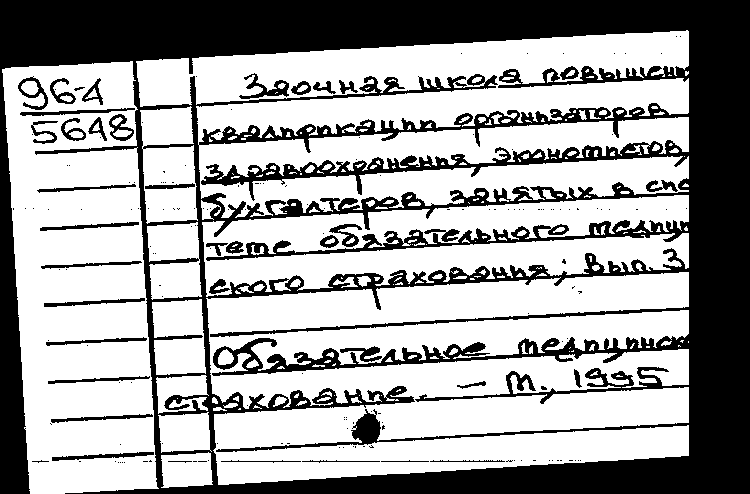 96-1
5648
Заочная школа повышени
квалификации организаторов
здравоохранения, экономистов,
бухгалтеров, занятых в сис
теме обязательного медицин
ского страхования; Вып. 3
Обязательное медицинск
страхование. — М., 1995